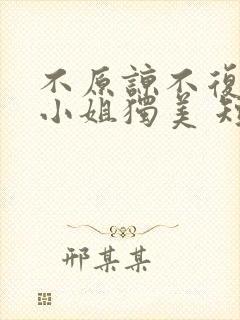 不原諒不復
小姐獨美
邢某某